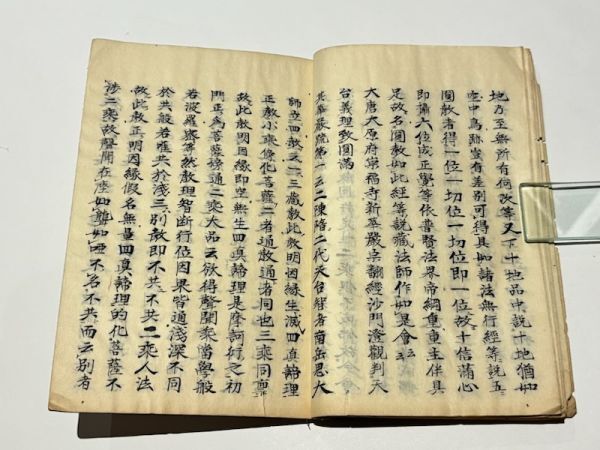 地乃至無所有何次等又下十地品中説十地猶如
空中鳥跡豈有差別可得具如諸法無行經等説五
圓教者得一位一切位一切位即一位故十信滿心
即攝六位成正覺等依普賢法界帝網重重主伴具
足故名圓教如此經等説藏法師作如是會云云
大唐大原府崇福寺新華嚴宗翻經沙門澄觀判天
台義理致圓滿
其華嚴疏第一云二陳隋二代天台智者南岳思大
師立四教之一三藏教此教明因緣生滅四真諦理
正教小乘傍化菩薩二者通教通者同也三乘同稟
故此教明因緣即空無生四真諦理是摩訶衍之初
門正為菩薩傍通二乘大品云欲得聲聞乘當學般
若波羅蜜等然教理智斷行位因果皆通淺深不同
於共般若唯共於淺三別教即不共不共二乘人法
故此教正明因緣假名無量四真諦理的化菩薩不
涉二乘故聲聞在座如聾如啞不名不共而云別者